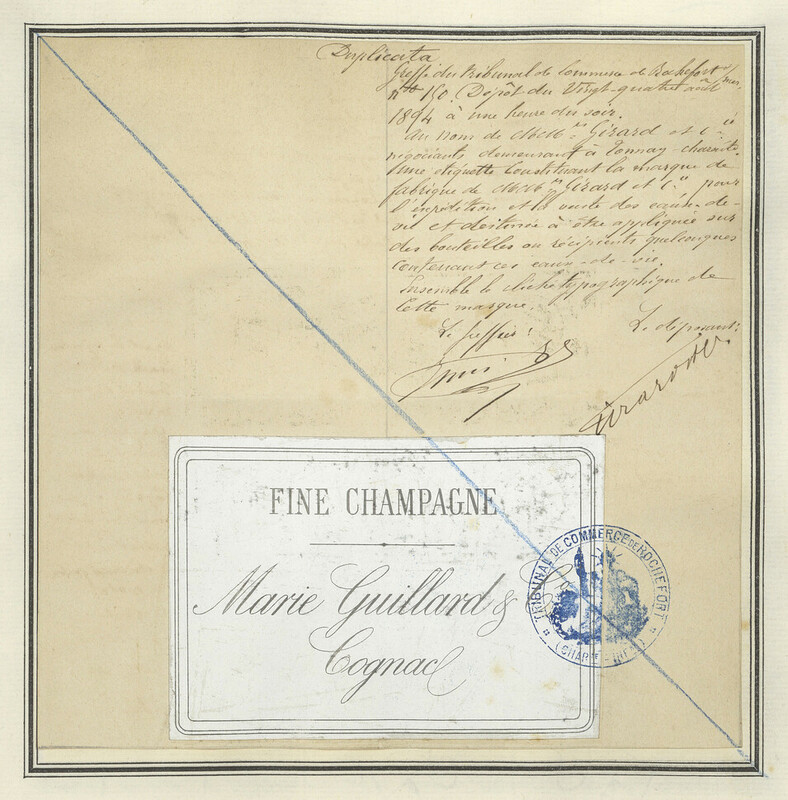 Duplicata
Greffe du tribunal de Commerce de Rochefort s/mer
N° 150. Dépôt du Vingt-quatre août
1894 à une heure du soir.
Au nom de MM rs Girard et Cie
négociants demeurant à Tonnay-charente.
Une étiquette constituant la marque de
fabrique de MM rs Girard et Cie, pour
l'expédition et la vente des eaux-de-
vie et destinée à être appliquée sur
des bouteilles ou récipients quelconques
contenant ces eaux-de-vie.
Ensemble le cliché typographique de
cette marque.
Le Greffier: Le déposant:
Girard &
FINE CHAMPAGNE
Marie Guillard & Co
Cognac
TRIBUNAL DE COMMERCE DE ROCHEFORT
(CHARTE-INFRE)